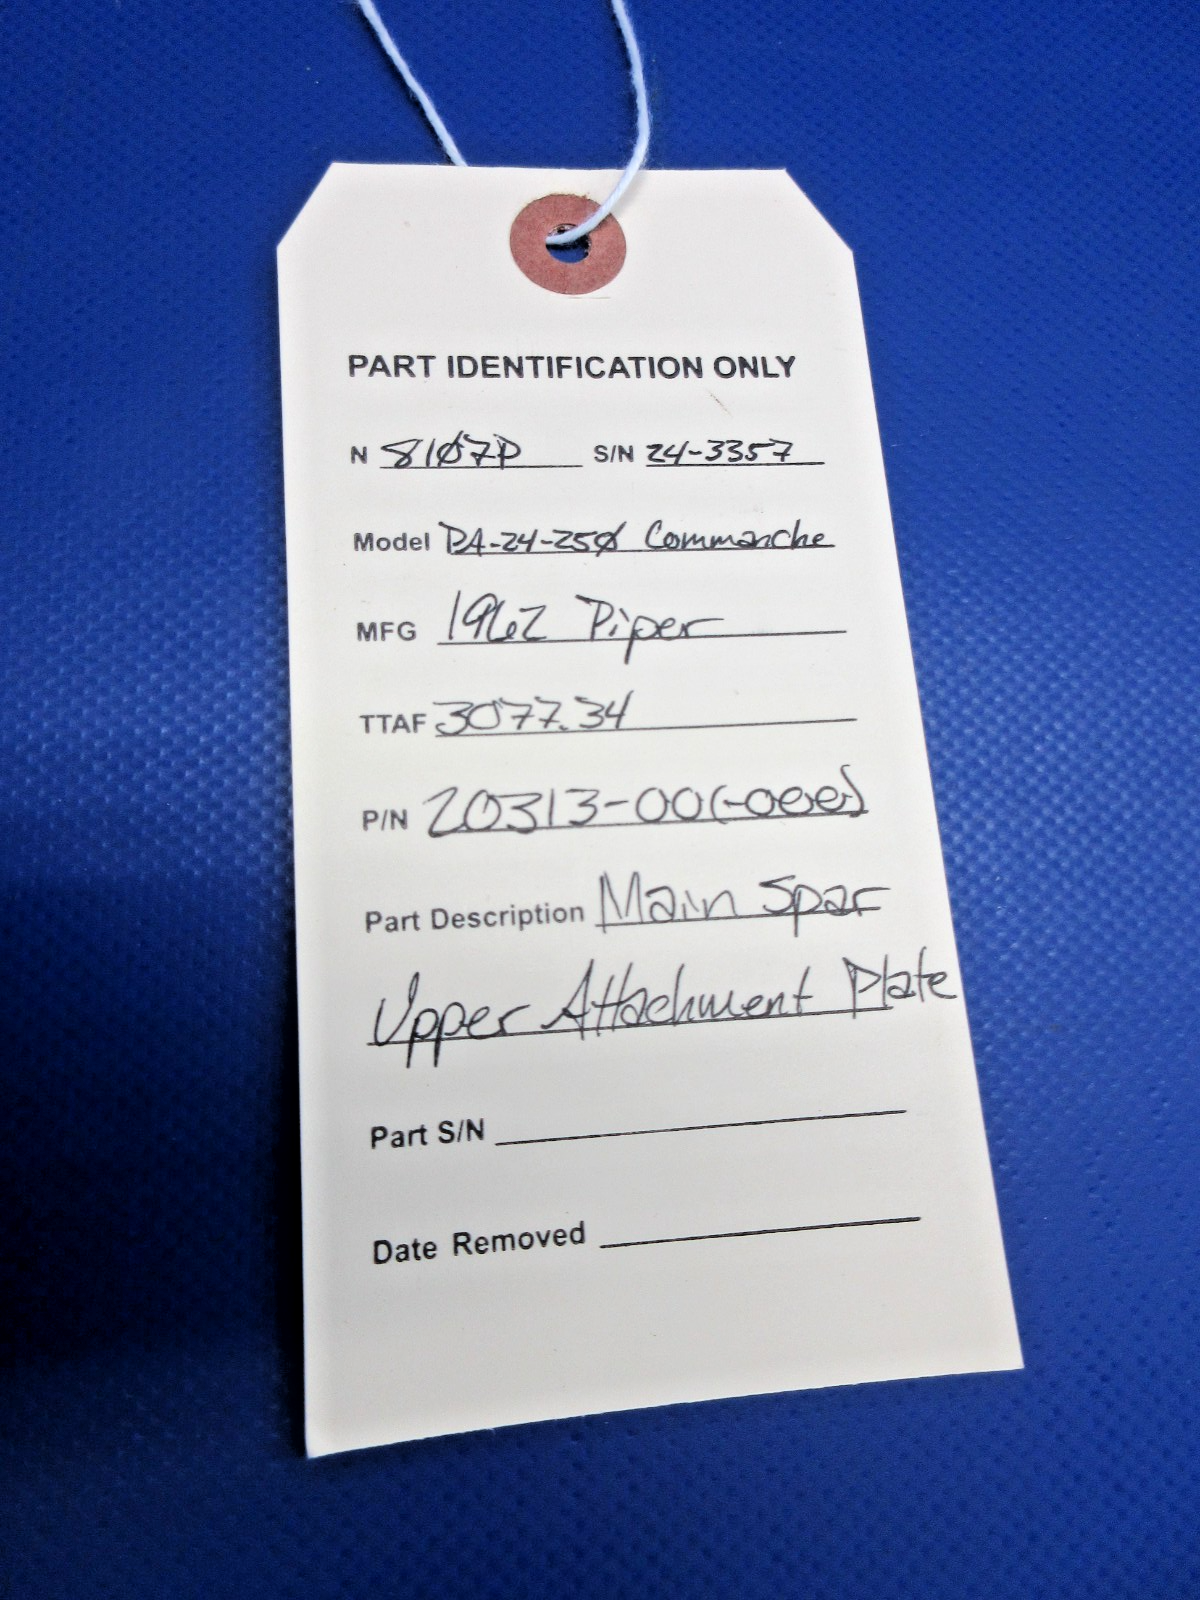 PART IDENTIFICATION ONLY
N 8107P S/N 24-3357
Model PA-24-250 Commanche
MFG 1962 Piper
TTAF 3077.34
P/N 20313-00(-000)
Part Description Main Spar
Upper Attachment Plate
Part S/N
Date Removed